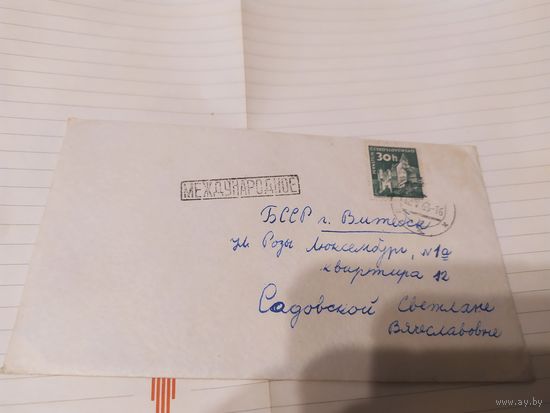 ČESKOSLOVENSKO
30h
МЕЖДУНАРОДНОЕ
БССР г. Витебск
ул. Розы Люксембург, N1а
квартира 12
Садовской Светлане
Вячеславовне
www.ay.by